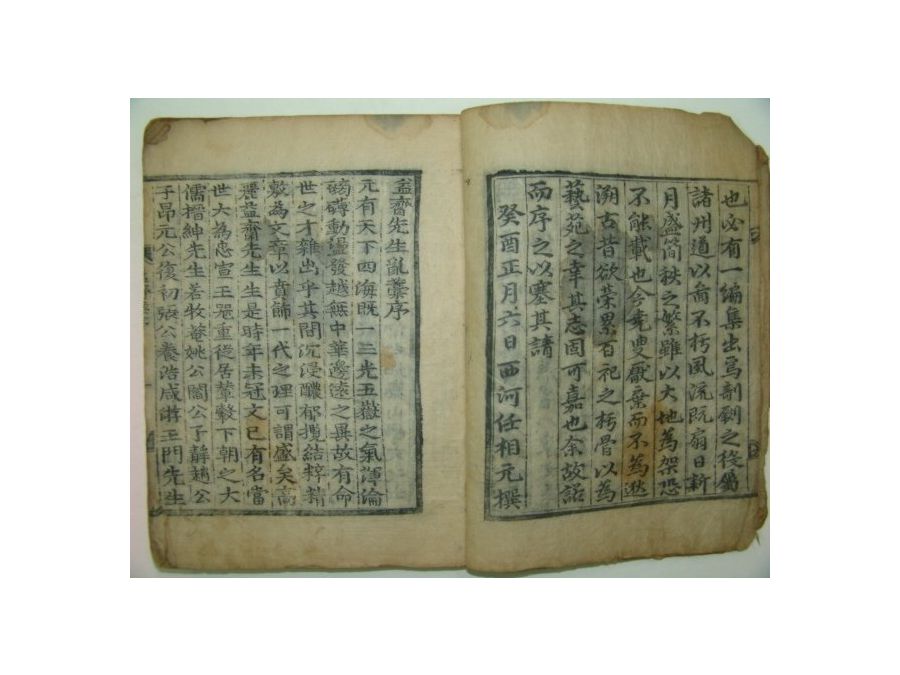 也必有一編集出焉剞劂之役屬
諸州道以為不朽風流既扇日新
月盛簡秩之繁雖以大地為架恐
不能載也今堯叟厭棄而不為逖
溯古昔欲荣累百祀之朽骨以為
藝苑之幸其志固可嘉也余故諾
而序之以塞其請
癸酉正月六日西河任相元撰
益齋先生亂藁序
元有天下四海既一三光五嶽之氣渾淪
磅礴動盪發越無中華邊遠之異故有命
世之才雜出乎其間沉浸醲郁攬結粹精
敷為文章以賁餙一代之理可謂盛矣高
麗益齋先生生是時年未冠文已有名當
世大為忠宣王器重從居輦轂下朝之大
儒搢紳先生若牧菴姚公閻公子靜趙公
子昂元公復初張公養浩咸游王門先生